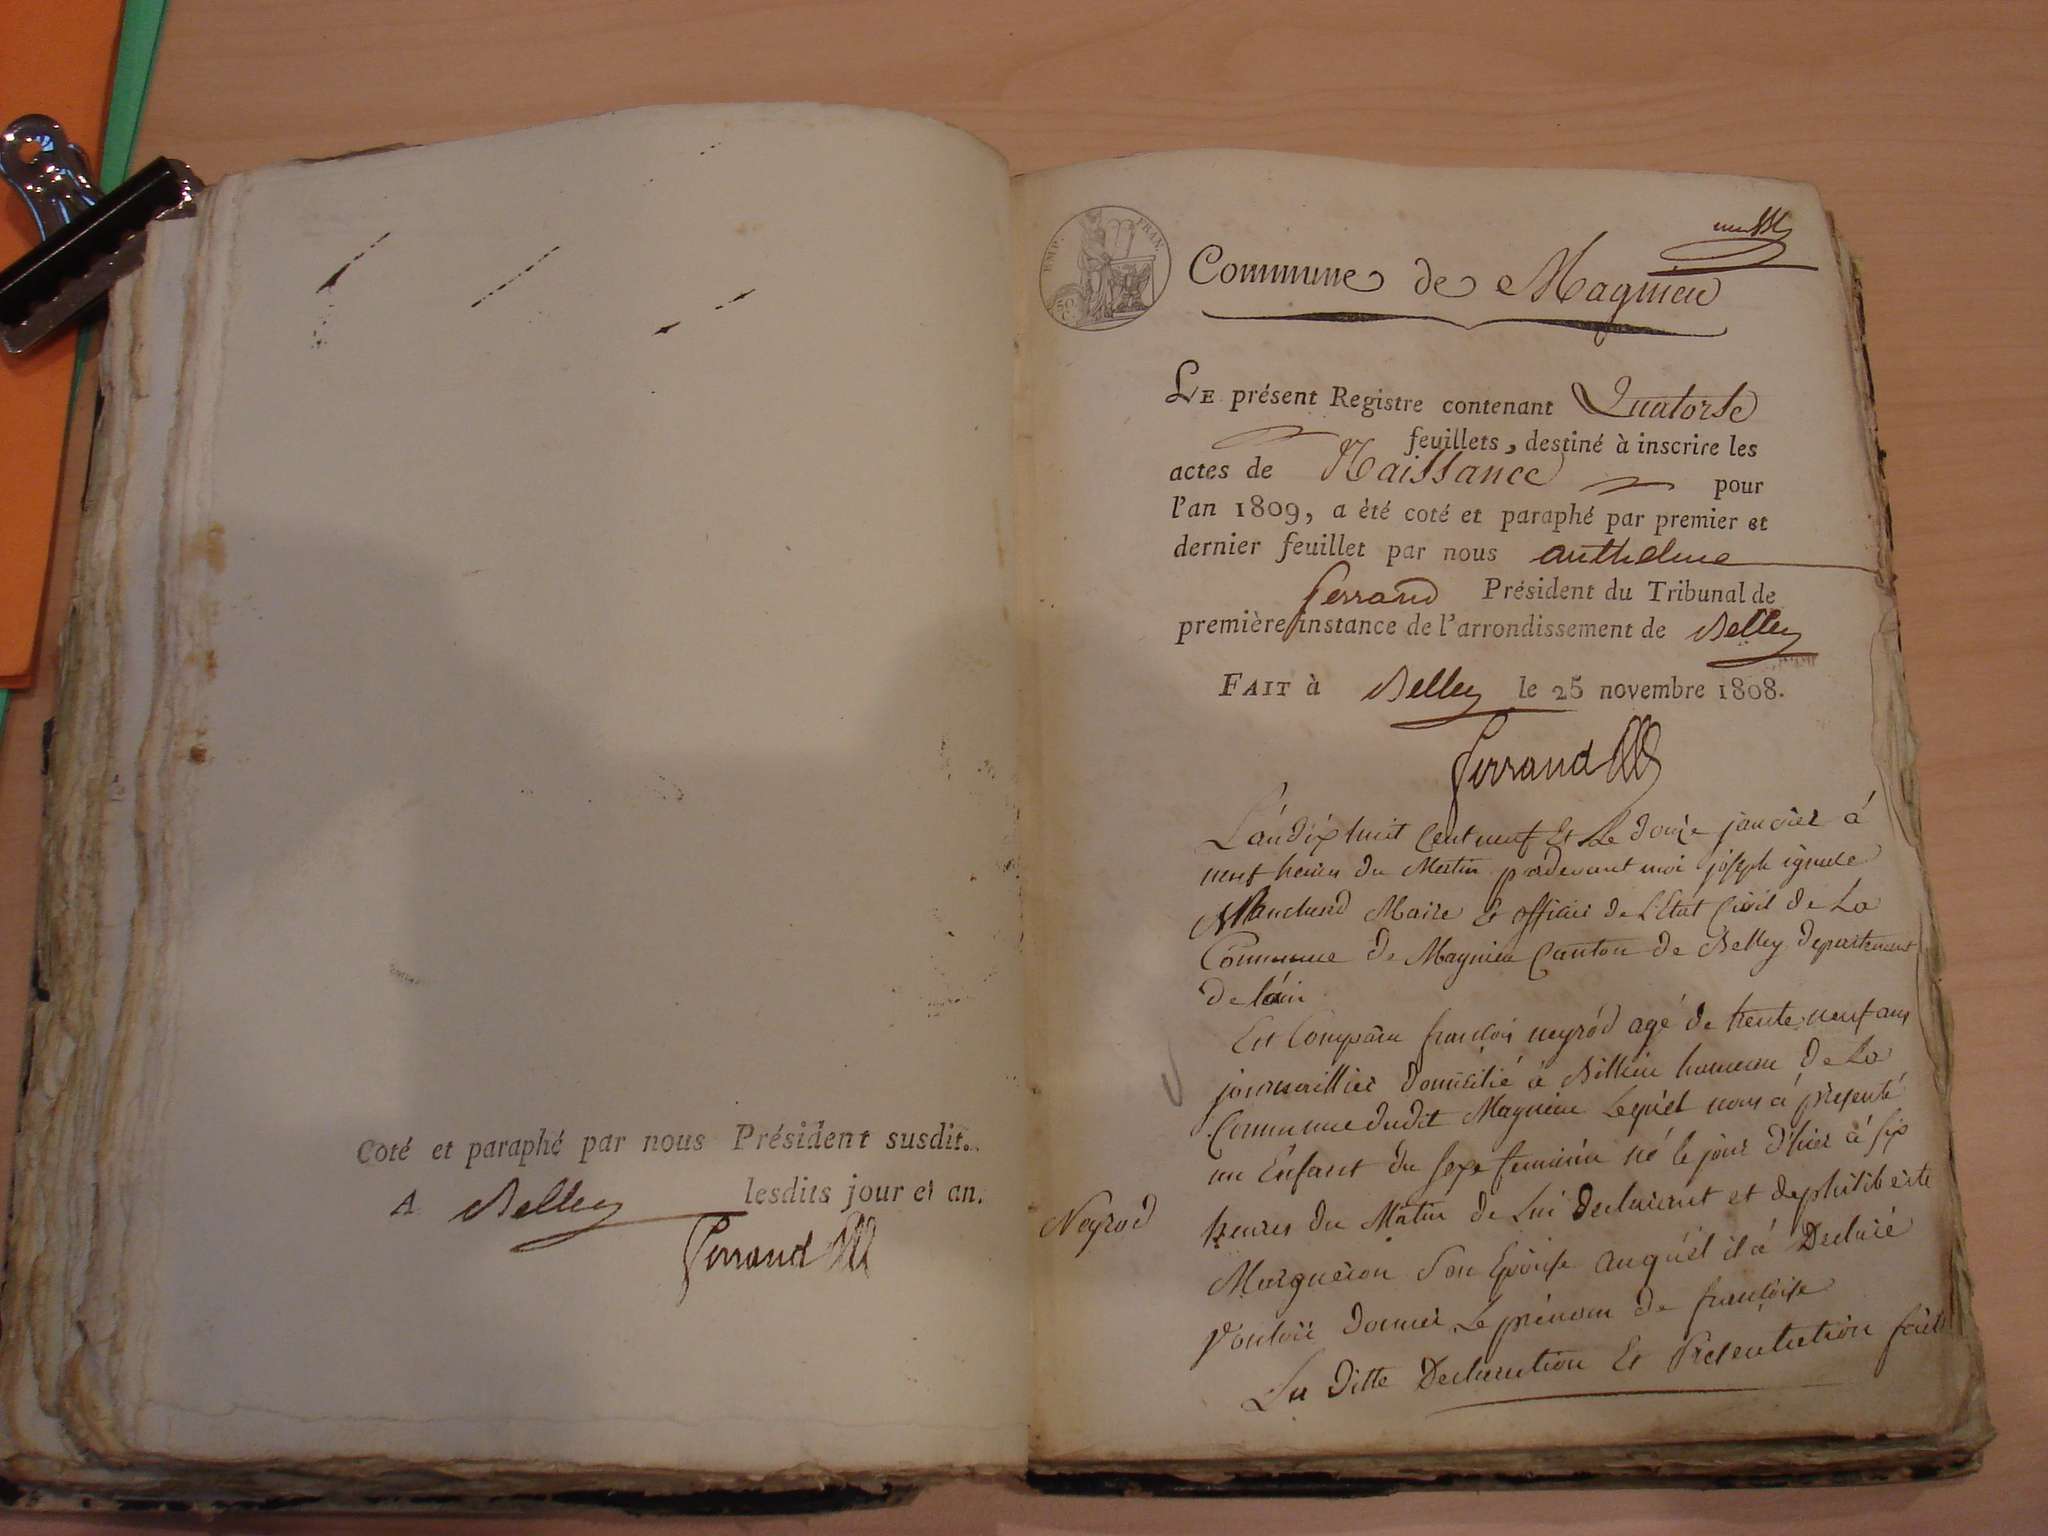 Coté et paraphé par nous Président susdit.
A Belley lesdits jour et an.
Ferrand
EMP. FRAN.
50 C.
Commune de Magnieu
LE présent Registre contenant Quatorse
feuillets, destiné à inscrire les
actes de Naissance pour
l'an 1809, a été coté et paraphé par premier et
dernier feuillet par nous anthelme
ferrand Président du Tribunal de
première instance de l'arrondissement de Belley
FAIT à Belley le 25 novembre 1808.
Ferrand
L'an dix huit Cent neuf Et Le douze janvier à
neuf heures du Matin pardevant moi joseph ignace
Marchand Maire Et officier de L'Etat Civil de La
Commune de Magnieu Canton de Belley departement
de l'ain
Est Comparu francois neyrod agé de trente neuf ans
journaillier domicilié à Billieu hameau de La
Commune dudit Magnieu Lequel nous à présenté
un Enfant du sexe feminin né le jour d'hier à six
Neyrod
heures du Matin de Lui declarant et de philiberte
Margueron Son Epouse auquel il à Declaré
Vouloir donner Le prénom de francoise
La ditte Declaration Et Présentation